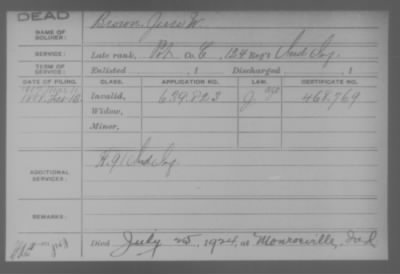 DEAD
NAME OF SOLDIER: Brown, Jesse W.
SERVICE: Late rank, Co. E, 124 Reg't Ind. Inf.
TERM OF SERVICE: Enlisted , 1 Discharged , 1
DATE OF FILING. CLASS. APPLICATION NO. LAW. CERTIFICATE NO.
Invalid, 639.823 468.769
Widow,
Minor,
ADDITIONAL SERVICES: Ind. Inf.
REMARKS:
Died July 25, 1924, at Monroeville, Ind